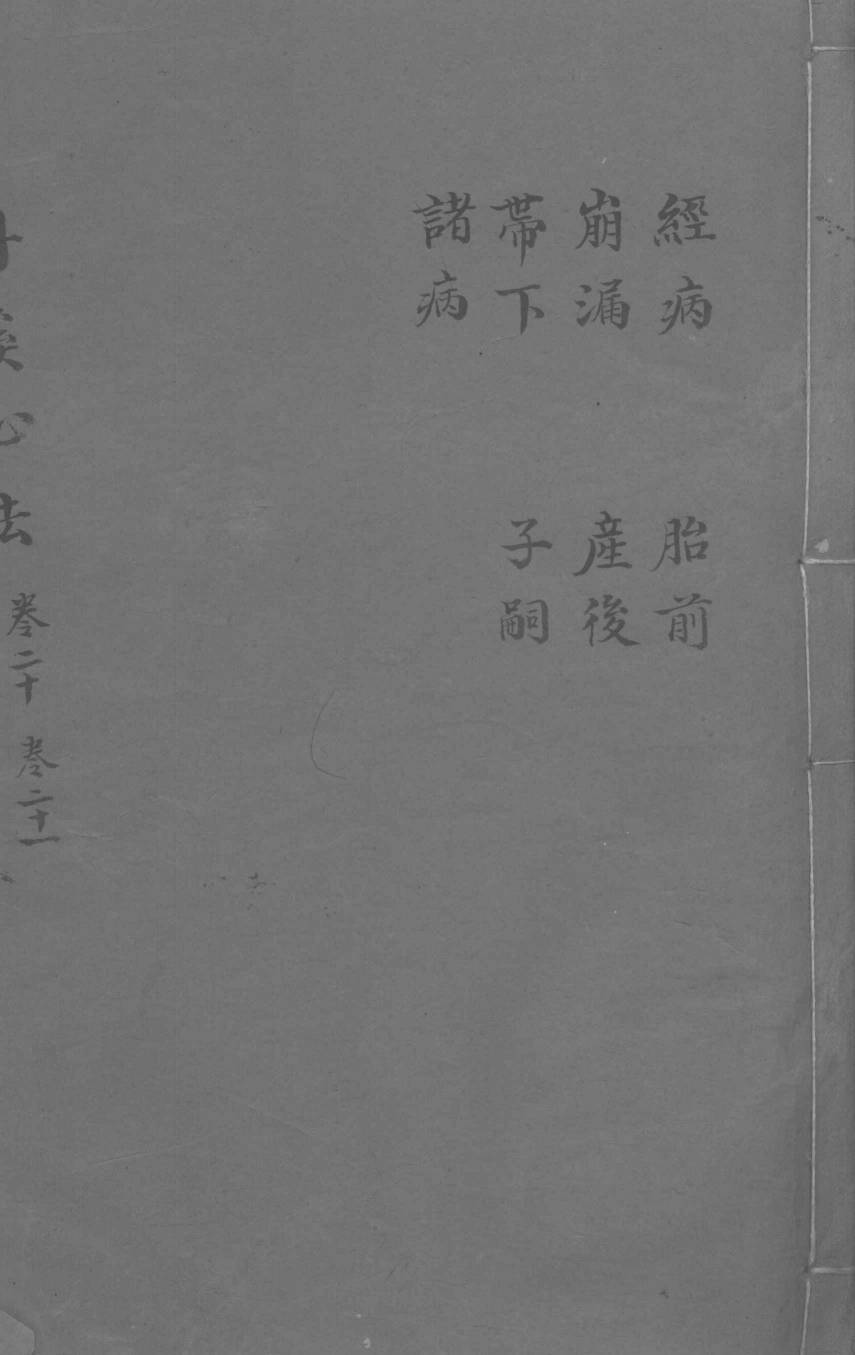 經病
崩漏
帶下
諸病
胎前
產後
子嗣
心法 卷二十 卷二十一